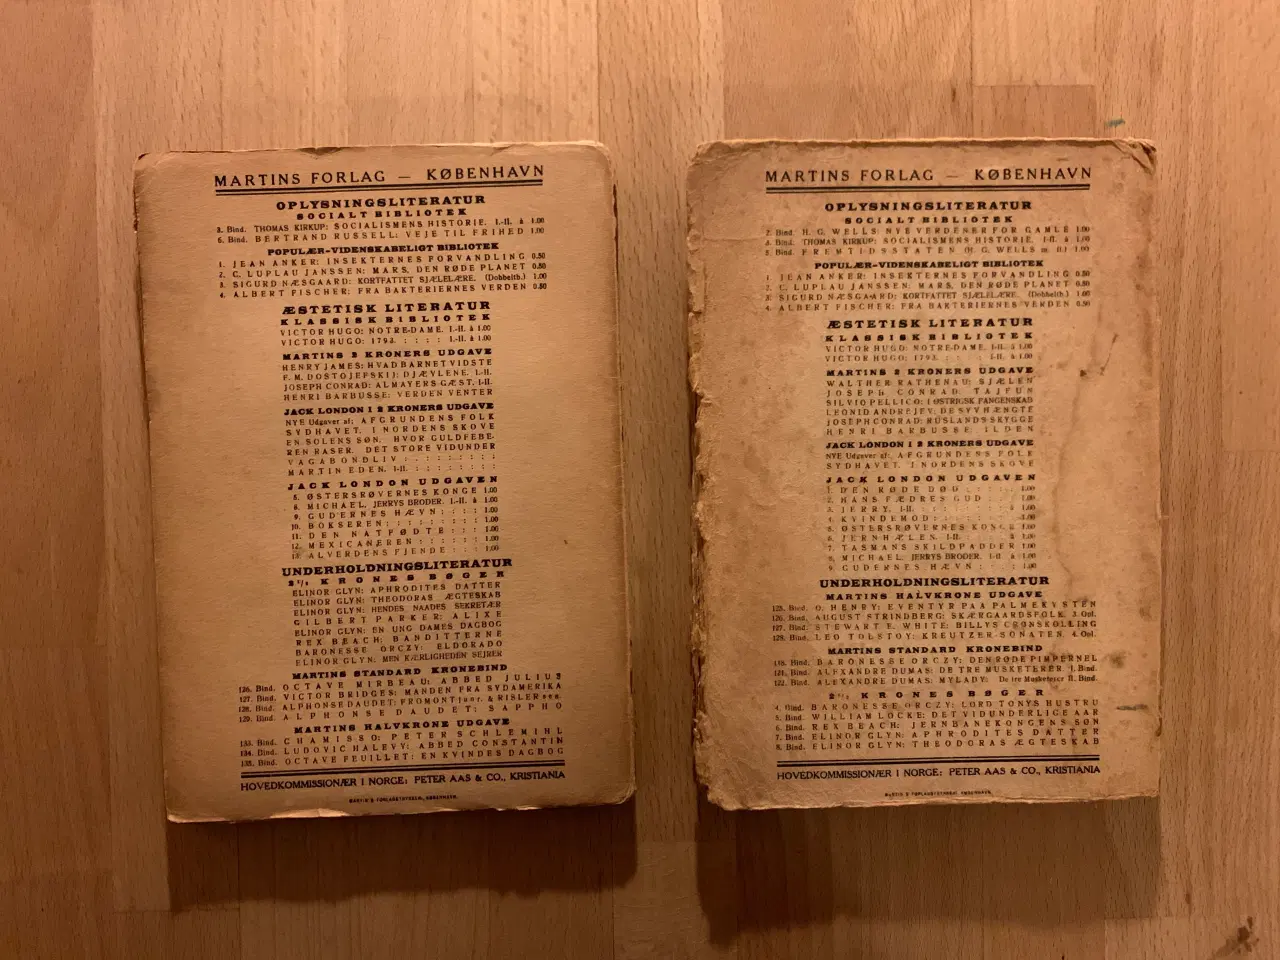 MARTINS FORLAG — KØBENHAVN
OPLYSNINGSLITERATUR
SOCIALT BIBLIOTEK
3. Bind. THOMAS KIRKUP: SOCIALISMENS HISTORIE. I.-II. à 1.00
6. Bind. BERTRAND RUSSELL: VEJE TIL FRIHED 1.00
POPULÆR-VIDENSKABELIGT BIBLIOTEK
1. JEAN ANKER: INSEKTERNES FORVANDLING 0.50
2. C. LUPLAU JANSSEN: MARS, DEN RØDE PLANET 0.50
3. SIGURD NÆSGAARD: KORTFATTET SJÆLELÆRE. (Dobbelth.) 1.00
4. ALBERT FISCHER: FRA BAKTERIERNES VERDEN 0.50
ÆSTETISK LITERATUR
KLASSISK BIBLIOTEK
VICTOR HUGO: NOTRE-DAME. I.-II. à 1.00
VICTOR HUGO: 1793. : : : : I.-II. à 1.00
MARTINS 2 KRONERS UDGAVE
HENRY JAMES: HVAD BARNET VIDSTE
F. M. DOSTOJEFSKIJ: DJÆVLENE. I.-II.
JOSEPH CONRAD: ALMAYERS GÆST. I-II.
HENRI BARBUSSE: VERDEN VENTER
JACK LONDON I 2 KRONERS UDGAVE
NYE Udgaver af: AFGRUNDENS FOLK
SYDHAVET. I NORDENS SKOVE
EN SOLENS SØN. HVOR GULDFEBE-
REN RASER. DET STORE VIDUNDER
VAGABONDLIV : : : : : : : :
MARTIN EDEN. I-II. : : : : : : :
JACK LONDON UDGAVEN
5. ØSTERSRØVERNES KONGE 1.00
8. MICHAEL, JERRYS BRODER. I.-II. à 1.00
9. GUDERNES HÆVN : : : : 1.00
10. BOKSEREN : : : : : : : 1.00
11. DEN NATFØDTE : : : : 1.00
12. MEXICANEREN : : : : : 1.00
13. ALVERDENS FJENDE : : : 1.00
UNDERHOLDNINGSLITERATUR
2 1/2 KRONES BØGER
ELINOR GLYN: APHRODITES DATTER
ELINOR GLYN: THEODORAS ÆGTESKAB
ELINOR GLYN: HENDES NAADES SEKRETÆR
GILBERT PARKER: ALIXE
ELINOR GLYN: EN UNG DAMES DAGBOG
REX BEACH: BANDITTERNE
BARONESSE ORCZY: ELDORADO
ELINOR GLYN: MEN KÆRLIGHEDEN SEJRER
MARTINS STANDARD KRONEBIND
126. Bind. OCTAVE MIRBEAU: ABBED JULIUS
127. Bind. VICTOR BRIDGES: MANDEN FRA SYDAMERIKA
128. Bind. ALPHONSE DAUDET: FROMONT jnr. & RISLER sen.
129. Bind. ALPHONSE DAUDET: SAPPHO
MARTINS HALVKRONE UDGAVE
133. Bind. CHAMISSO: PETER SCHLEMIHL
134. Bind. LUDOVIC HALEVY: ABBED CONSTANTIN
135. Bind. OCTAVE FEUILLET: EN KVINDES DAGBOG
HOVEDKOMMISSIONÆR I NORGE: PETER AAS & CO., KRISTIANIA
MARTIN'S FORLAGSTRYKKERI, KØBENHAVN.
MARTINS FORLAG — KØBENHAVN
OPLYSNINGSLITERATUR
SOCIALT BIBLIOTEK
2. Bind. H. G. WELLS: NYE VERDENER FOR GAMLE 1.00
3. Bind. THOMAS KIRKUP: SOCIALISMENS HISTORIE. I-II. à 1.00
5. Bind. FREMTIDSSTATEN (H. G. WELLS m. fl.) 1.00
POPULÆR-VIDENSKABELIGT BIBLIOTEK
1. JEAN ANKER: INSEKTERNES FORVANDLING 0.50
2. C. LUPLAU JANSSEN: MARS, DEN RØDE PLANET 0.50
3. SIGURD NÆSGAARD: KORTFATTET SJÆLELÆRE. (Dobbelth.) 1.00
4. ALBERT FISCHER: FRA BAKTERIERNES VERDEN 0.50
ÆSTETISK LITERATUR
KLASSISK BIBLIOTEK
VICTOR HUGO: NOTRE-DAME. I-II. à 1.00
VICTOR HUGO: 1793. : : : : I-II. à 1.00
MARTINS 2 KRONERS UDGAVE
WALTHER RATHENAU: SJÆLEN
JOSEPH CONRAD: TAJFUN
SILVIO PELLICO: I ØSTRIGSK FANGENSKAB
LEONID ANDREJEV: DE SYV HÆNGTE
JOSEPH CONRAD: RUSLANDS SKYGGE
HENRI BARBUSSE: ILDEN
JACK LONDON I 2 KRONERS UDGAVE
NYE Udgaver af: AFGRUNDENS FOLK
SYDHAVET. I NORDENS SKOVE
JACK LONDON UDGAVEN
1. DEN RØDE DØD : : : : : 1.00
2. HANS FÆDRES GUD : : : 1.00
3. JERRY. I-II. : : : : : à 1.00
4. KVINDEMOD : : : : : : 1.00
5. ØSTERSRØVERNES KONGE 1.00
6. JERNHÆLEN. I-II. : : : à 1.00
7. TASMANS SKILDPADDER 1.00
8. MICHAEL, JERRYS BRODER. I-II à 1.00
9. GUDERNES HÆVN : : : : 1.00
UNDERHOLDNINGSLITERATUR
MARTINS HALVKRONE UDGAVE
125. Bind. O. HENRY: EVENTYR PAA PALMEKYSTEN
126. Bind. AUGUST STRINDBERG: SKÆRGAARDSFOLK. 3. Opl.
127. Bind. STEWART E. WHITE: BILLYS GRØNSKOLLING
128. Bind. LEO TOLSTOY: KREUTZER-SONATEN. 4. Opl.
MARTINS STANDARD KRONEBIND
Bind. BARONESSE ORCZY: DEN RØDE PIMPERNEL
121. Bind. ALEXANDRE DUMAS: DE TRE MUSKETERER I. Bind.
122. Bind. ALEXANDRE DUMAS: MYLADY. De tre Musketerer II. Bind
2 1/2 KRONES BØGER
4. Bind. BARONESSE ORCZY: LORD TONYS HUSTRU
5. Bind. WILLIAM LOCKE: DET VIDUNDERLIGE AAR
6. Bind. REX BEACH: JERNBANEKONGENS SØN
7. Bind. ELINOR GLYN: APHRODITES DATTER
8. Bind. ELINOR GLYN: THEODORAS ÆGTESKAB
HOVEDKOMMISSIONÆR I NORGE: PETER AAS & CO., KRISTIANIA
MARTIN'S FORLAGSTRYKKERI, KØBENHAVN.